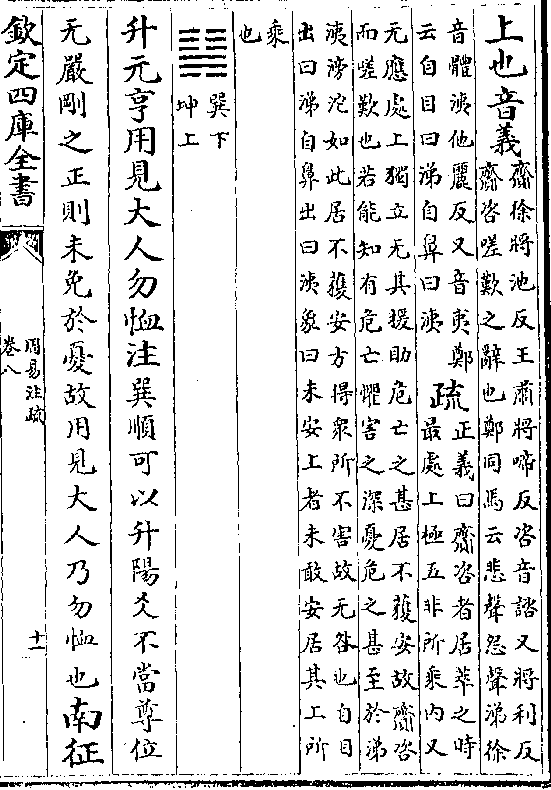 上也音義齊徐將池反王肅將啼反咨音諮又將利反
齊咨嗟歎之辭也鄭同馬云悲聲怨聲涕徐
音體洟他麗反又音夷鄭
云自目曰涕自鼻曰洟
疏正義曰齊咨者居萃之時
最處上極五非所乘内又
无應處上獨立无其援助危亡之甚居不獲安故齊咨
而嗟歎也若能知有危亡懼害之深憂危之甚至於涕
洟滂沱如此居不獲安方得衆所不害故无咎也自目
出曰涕自鼻出曰洟象曰未安上者未敢安居其上所
乘
也
巽下
坤上
升元亨用見大人勿恤注巽順可以升陽爻不當尊位
无嚴剛之正則未免於憂故用見大人乃勿恤也南征
欽定四庫全書
周易注疏
卷八
十一